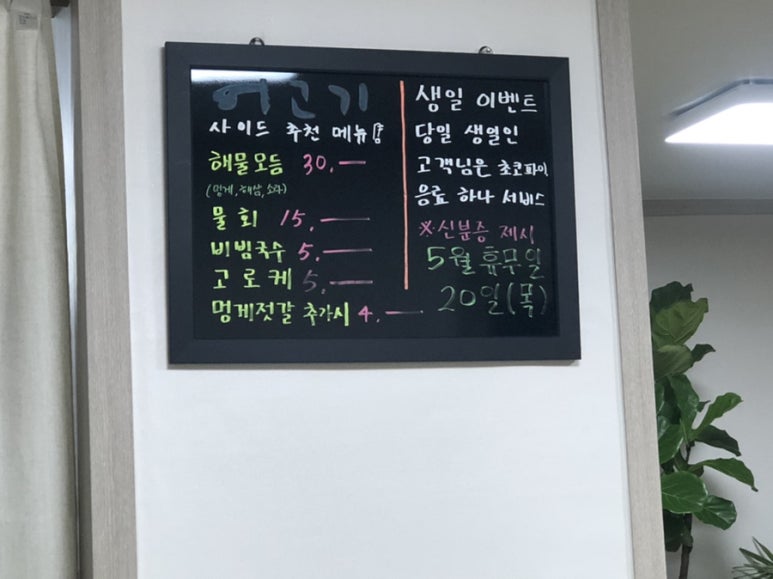 어고기
사이드 추천 메뉴
해물모듬 30.—
(멍게, 해삼, 소라)
물회 15.—
비빔국수 5.—
고로케 5.—
멍게젓갈 추가시 4.—
생일 이벤트
당일 생일인
고객님은 초코파이
음료 하나 서비스
※신분증 제시
5월 휴무일
20일(목)